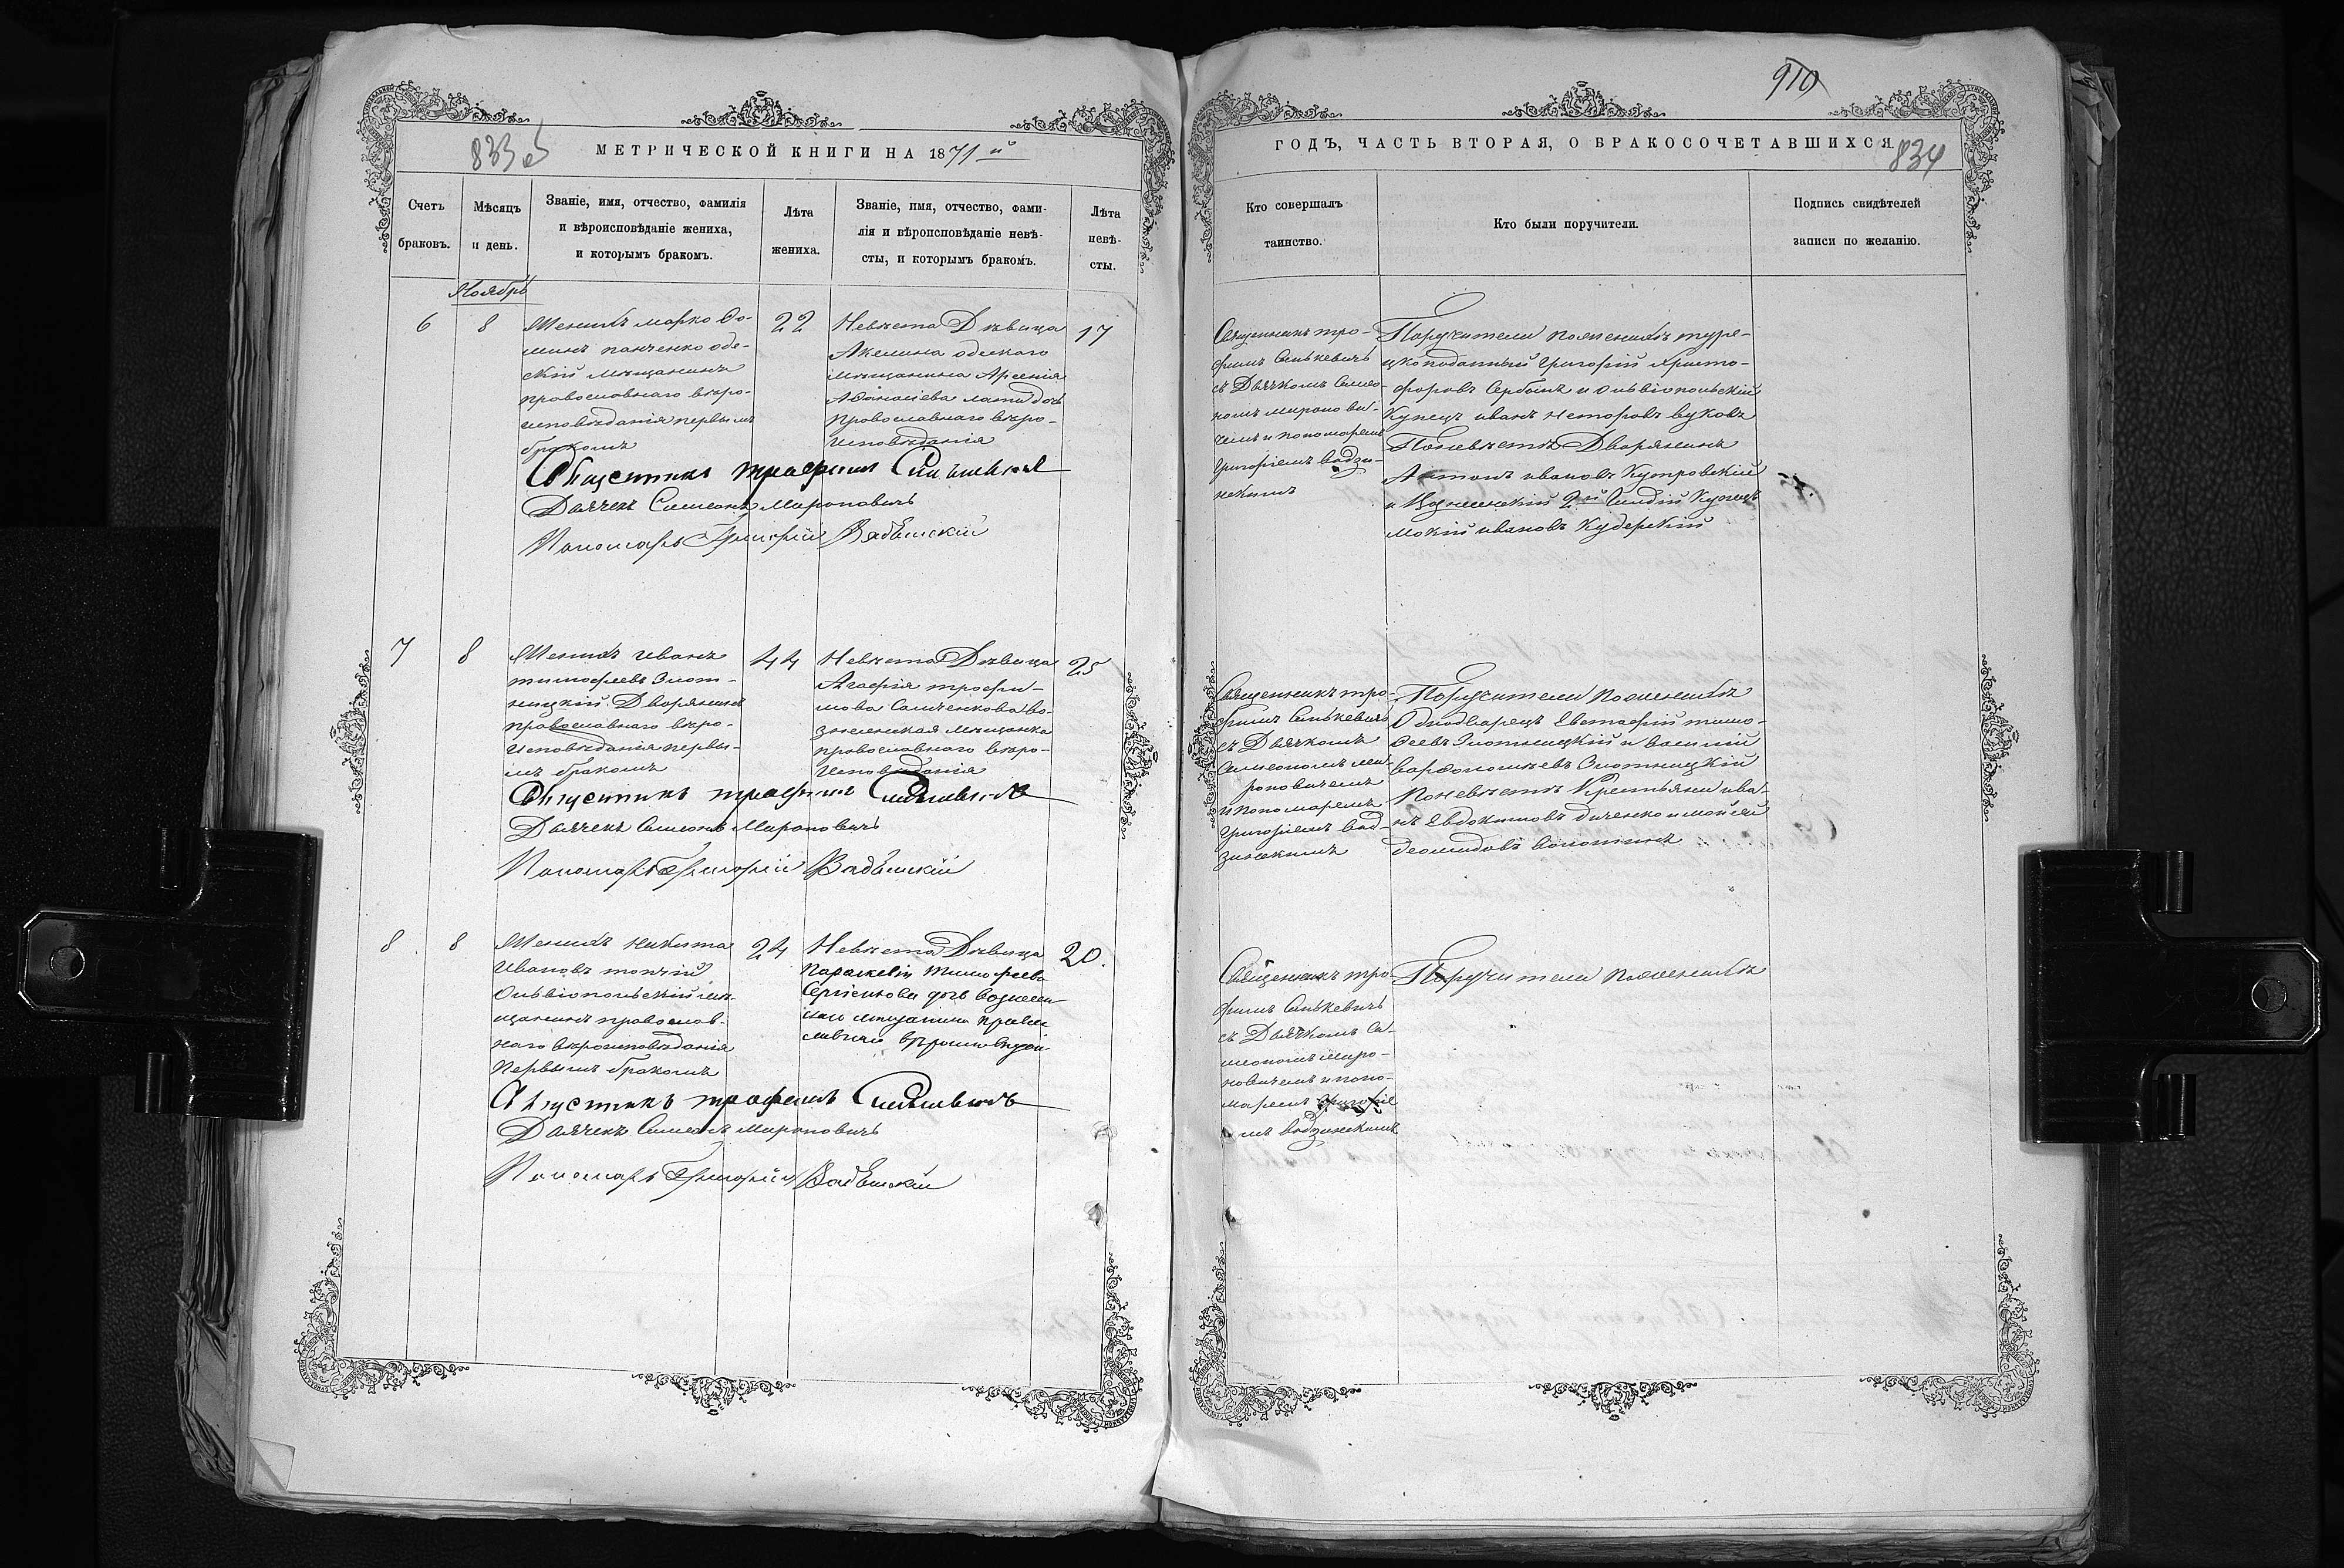 833 об
МЕТРИЧЕСКОЙ КНИГИ НА 1871 й
Счетъ браковъ.
Мѣсяцъ и день.
Званіе, имя, отчество, фамилія
и вѣроисповѣданіе жениха,
и которымъ бракомъ.
Лѣта жениха.
Званіе, имя, отчество, фами-
лія и вѣроисповѣданіе невѣ-
сты, и которымъ бракомъ.
Лѣта невѣ-
сты.
Ноябрь
6
8
Женихъ марко Ѳо-
минъ панченко оде-
скій мѣщанинъ
православнаго вѣро-
исповѣданія первымъ
бракомъ
22
Невѣста Дѣвица
Акелина одескаго
мѣщанина Арсенія
Аѳонасіева дочь
православнаго вѣро-
исповѣданія
17
Священникъ трофимъ Синькевичъ
Дьячекъ Симеонъ Мироновичъ
Пономарь Григорій
7
8
Женихъ иванъ
тимофеевъ Злот-
ницкій Дворянинъ
православнаго вѣро-
исповѣданія первы-
мъ бракомъ
44
Невѣста Дѣвица
Агафія трофи-
мова Самченкова во-
знесенская мѣщанка
православнаго вѣро-
исповѣданія
25
Священникъ трофимъ Синькевичъ
Дьячекъ Симеонъ Мироновичъ
Пономарь Григорій
8
8
Женихъ никита
ивановъ топчій
Ольвіопольскій мѣ-
щанинъ правослов-
наго вѣроисповѣданія
первымъ бракомъ
24
Невѣста Дѣвица
Параскевія Тимофеева
Сергіенкова дочь вознесен-
20.
Священникъ трофимъ Синькевичъ
Дьячекъ Симеонъ Мироновичъ
Пономарь Григорій
910
ГОДЪ, ЧАСТЬ ВТОРАЯ, О БРАКОСОЧЕТАВШИХСЯ
834
Кто совершалъ
таинство.
Кто были поручители.
Подпись свидѣтелей
записи по желанію.
Священникъ тро-
фимъ Синькевичъ
съ Дьячкомъ Симео-
номъ миронови-
чемъ и пономаремъ
Григоріемъ вадзи-
нскимъ
Поручители поженихѣ туре-
цкоподанный Григорій Христо-
форовъ Сербовъ и ольвіопольскій
Купецъ иванъ Несторовъ вуковъ
Поневѣстѣ Дворянинъ
Антонъ ивановъ Кутровскій
и Вознесенскій 2й Гилдій Купецъ
мокій ивановъ Кудерскій
Священникъ тро-
фимъ Синькевичъ
съ Дьячкомъ
Симеономъ ми-
роновичемъ
и пономаремъ
Григоріемъ вад-
зинскимъ
Поручители поженихѣ
Однодварецъ Евстафій тимо-
феевъ Злотницкій и василій
варфоломеевъ Злотницкій
Поневѣстѣ Крестьяни ива-
нъ Евдокимовъ диченко и мойсей
деомидовъ волошинъ
Священникъ тро-
фимъ Синькевичъ
съ Дьячкомъ Си-
меономъ миро-
новичемъ и поно-
маремъ григоріе
мъ вадзинскимъ
Поручители поженихѣ